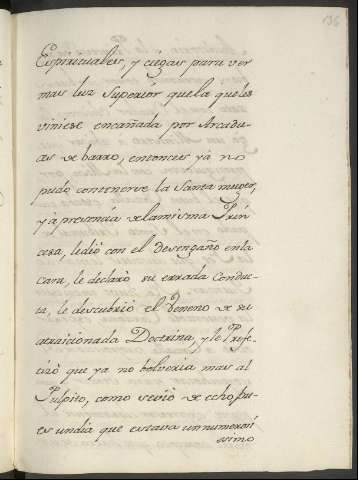 136
Espirituales, y ciegas para ver
mas luz superior que la que les
viniese encañada por Arcadu-
as de barro, entonces yà no
pudo contenerse la Santa muger,
y à presencia de la misma Prin
cesa, le dió con el desengaño en la
cara, le declarò su errada Conduc-
ta, le descubriò el Veneno de su
atraicionada Doctrina, y le Profe-
tizò que ya no bolveria mas al
Pulpito, como seviò de echo, pu-
es undia que estava un numerosi
simo